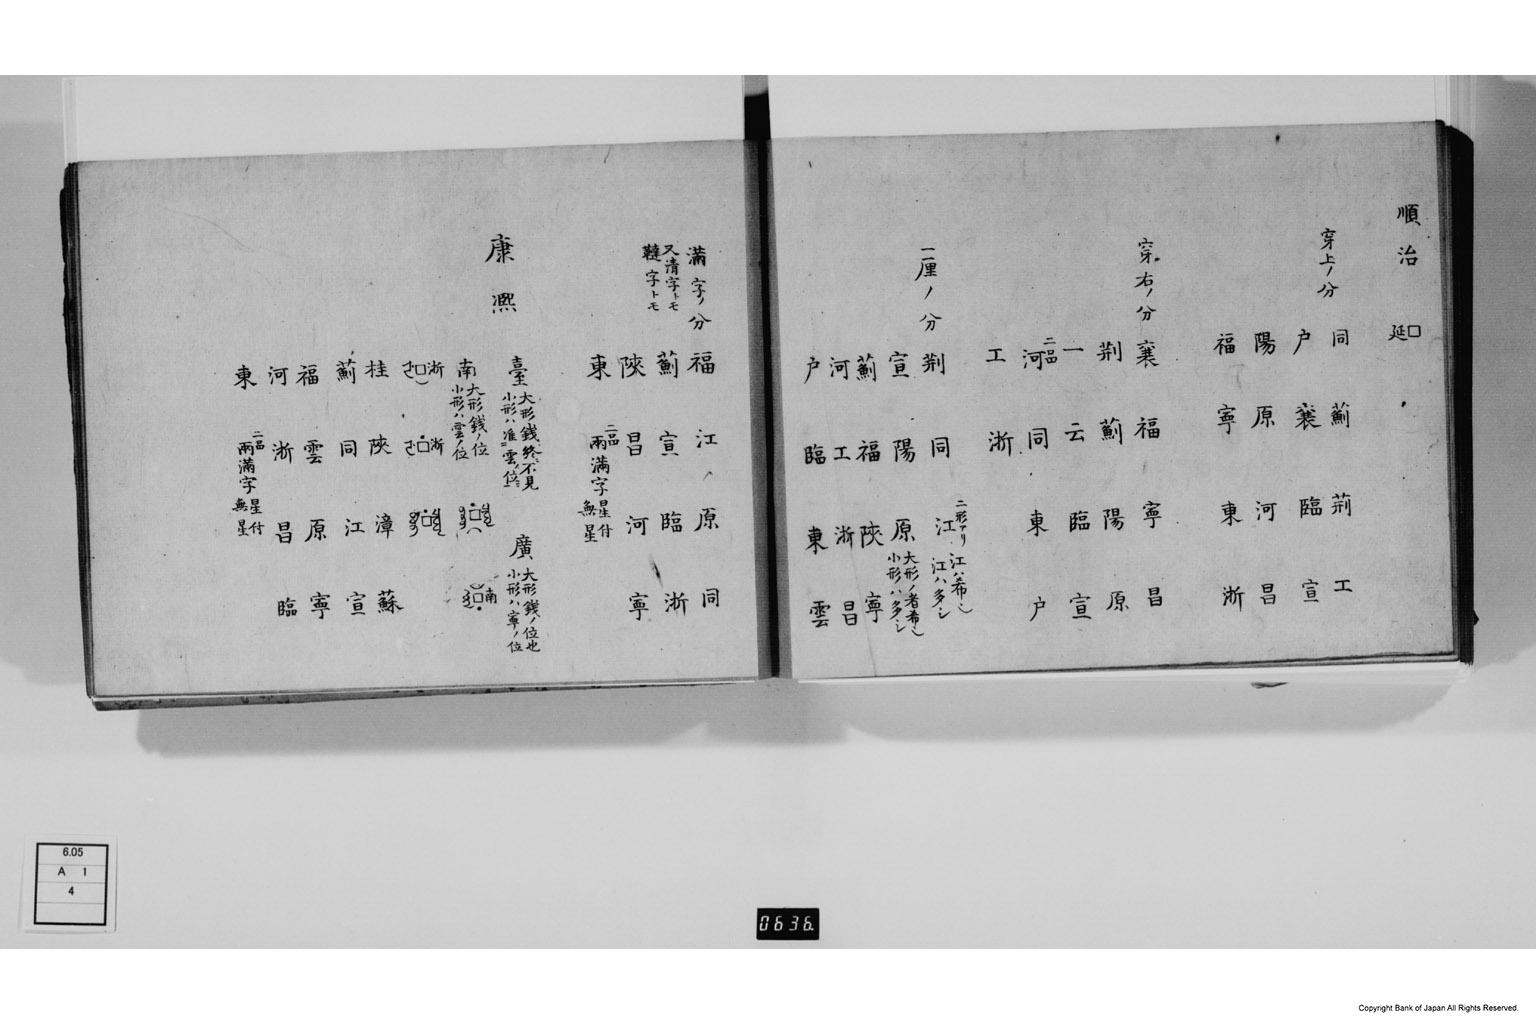 順治
延
穿上ノ分
同 薊 荆 工
户 襄 臨 宣
陽 原 河 昌
福 寧 東 浙
穿右ノ分
襄 福 寧 昌
荆 薊 陽 原
一 云 臨 宣
二品
河 同 東 户
工 浙
一厘ノ分
荆 同 江
二形アリ 江ハ希シ
江ハ多シ
宣 陽 原
大形ノ者希シ
小形ハ多シ
薊 福 陝 寧
河 工 浙 昌
户 臨 東 雲
満字ノ分
又清字トモ
韃字トモ
福 江 原 同
薊 宣 臨 浙
陝 昌 河 寧
東 二品 兩満字 星付
無星
康熈
臺 大形錢終不見
小形ハ准雲位
廣 大形錢ノ位也
小形ハ寧ノ位
南 大形錢ノ位
小形ハ雲ノ位
南
浙 浙
桂 陝 漳 蘇
薊 同 江 宣
福 雲 原 寧
河 浙 昌 臨
東 二品 兩満字 星付
無星
6.05
A 1
4
0636
Copyright Bank of Japan All Rights Reserved.